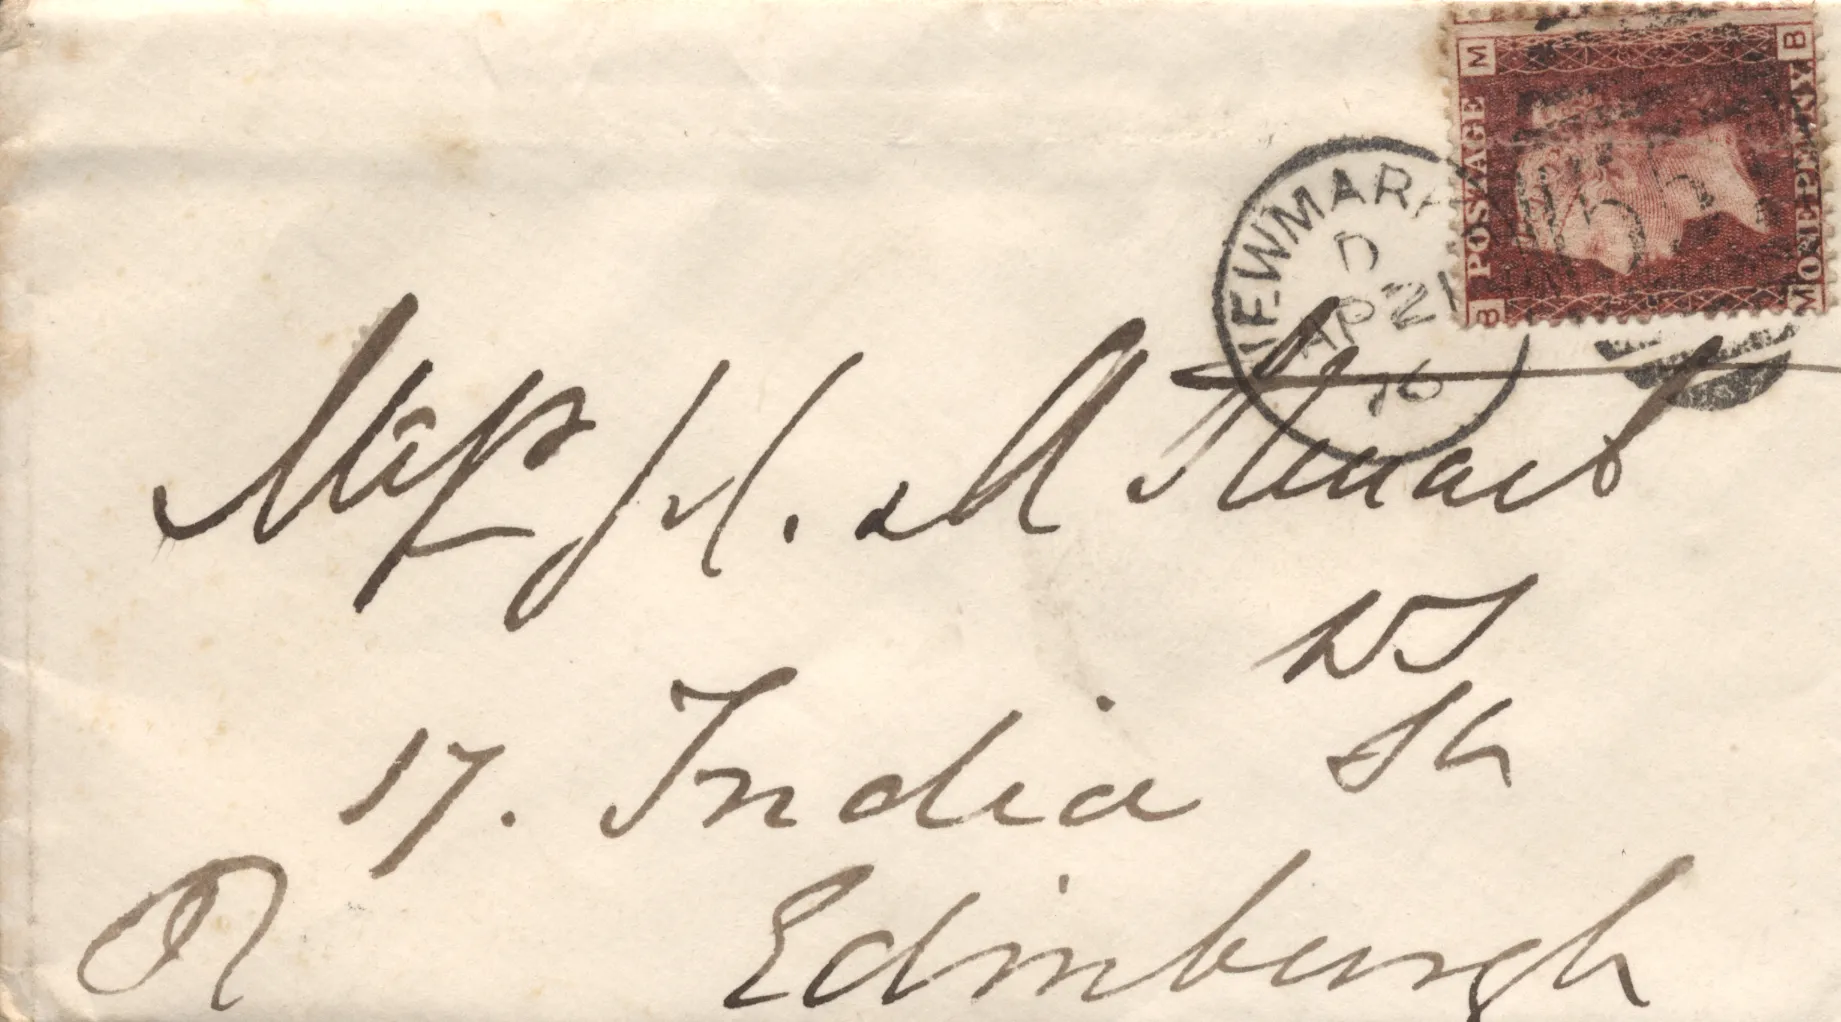 M B
POSTAGE
ONE PENNY
B M
NEWMARK
D
AP 21
76
Miss H. M Steuart
WS
17. India St
Edinburgh